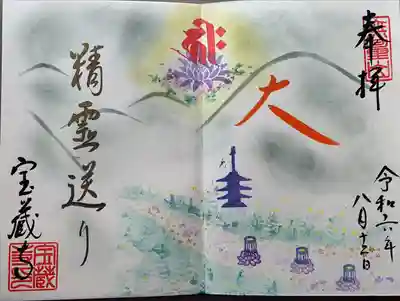 奉拝
令和六年
八月十三日
大
精霊送り
宝蔵寺